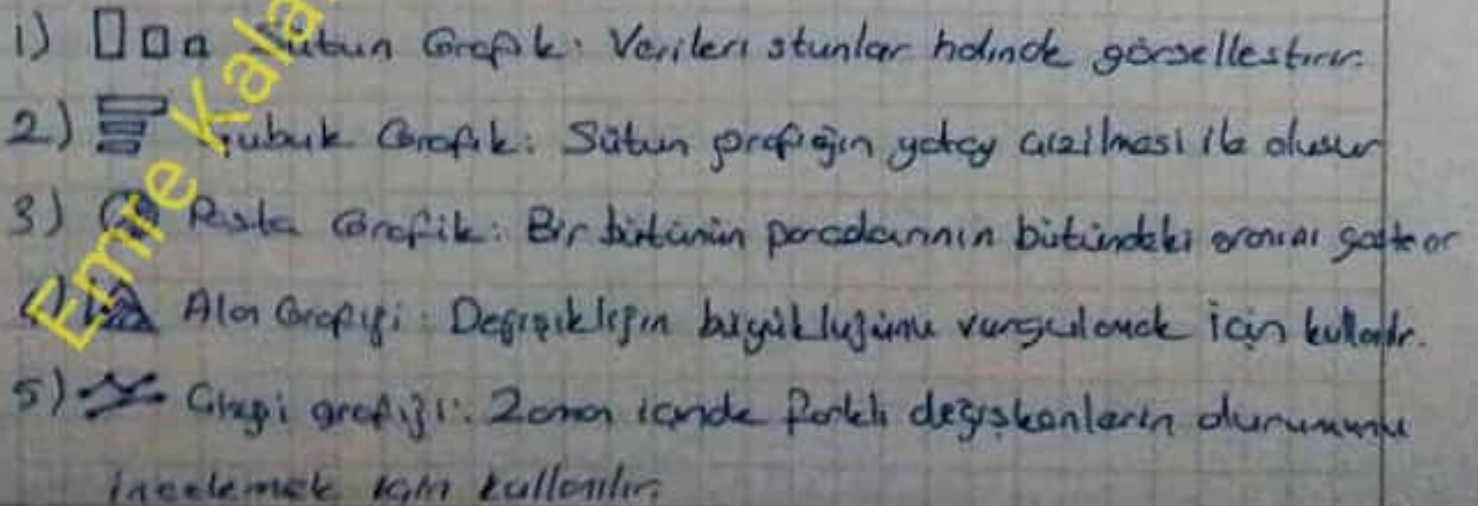 1) Sütun Grafik: Verileri stunlar halinde görselleştirir.
2) Çubuk Grafik: Sütun grafiğin yatay çizilmesi ile oluşur
3) Pasta Grafik: Bir bütünün parçalarının bütündeki oranını gösterir
4) Alan Grafiği: Değişikliğin büyüklüğünü vurgulamak için kullanılır.
5) Çizgi grafiği: Zaman içinde farklı değişkenlerin durumunu
incelemek için kullanılır.
Emre Kala